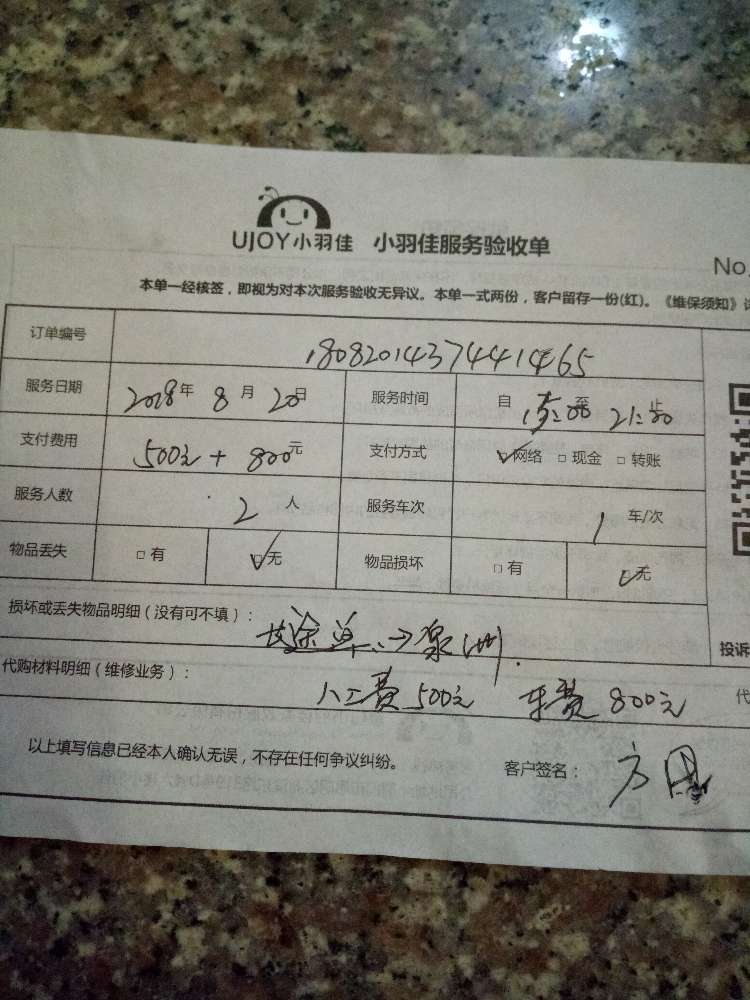 UJOY小羽佳 小羽佳服务验收单
No.
本单一经核签，即视为对本次服务验收无异议。本单一式两份，客户留存一份(红)。《维保须知》
订单编号 18082014374414465
服务日期 2018年 8月 20日 服务时间 自 15:00 至 21:00 止
支付费用 500元 + 800元 支付方式 ☑网络 □现金 □转账
服务人数 2人 服务车次 1 车/次
物品丢失 □有 ☑无 物品损坏 □有 ☑无
损坏或丢失物品明细（没有可不填）： 长途单:→泉州. 投诉
代购材料明细（维修业务）： 人工费500元 车费800元 代
以上填写信息已经本人确认无误，不存在任何争议纠纷。 客户签名： 方